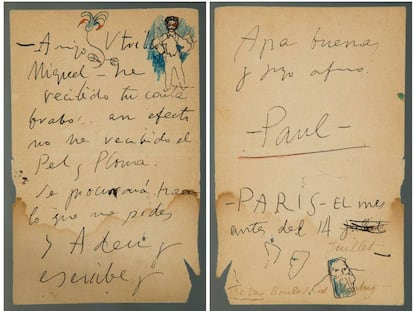 - Amigo Utrillo
Miguel - he
recibido tu carta
brabo... en efecto
no he recibido el
Pel y Ploma.
Se procurará
lo que me pides
y Adeu y
escribe y
Apa buenas
y
- Paul -
- PARIS - EL mes
antes del 14
Juillet